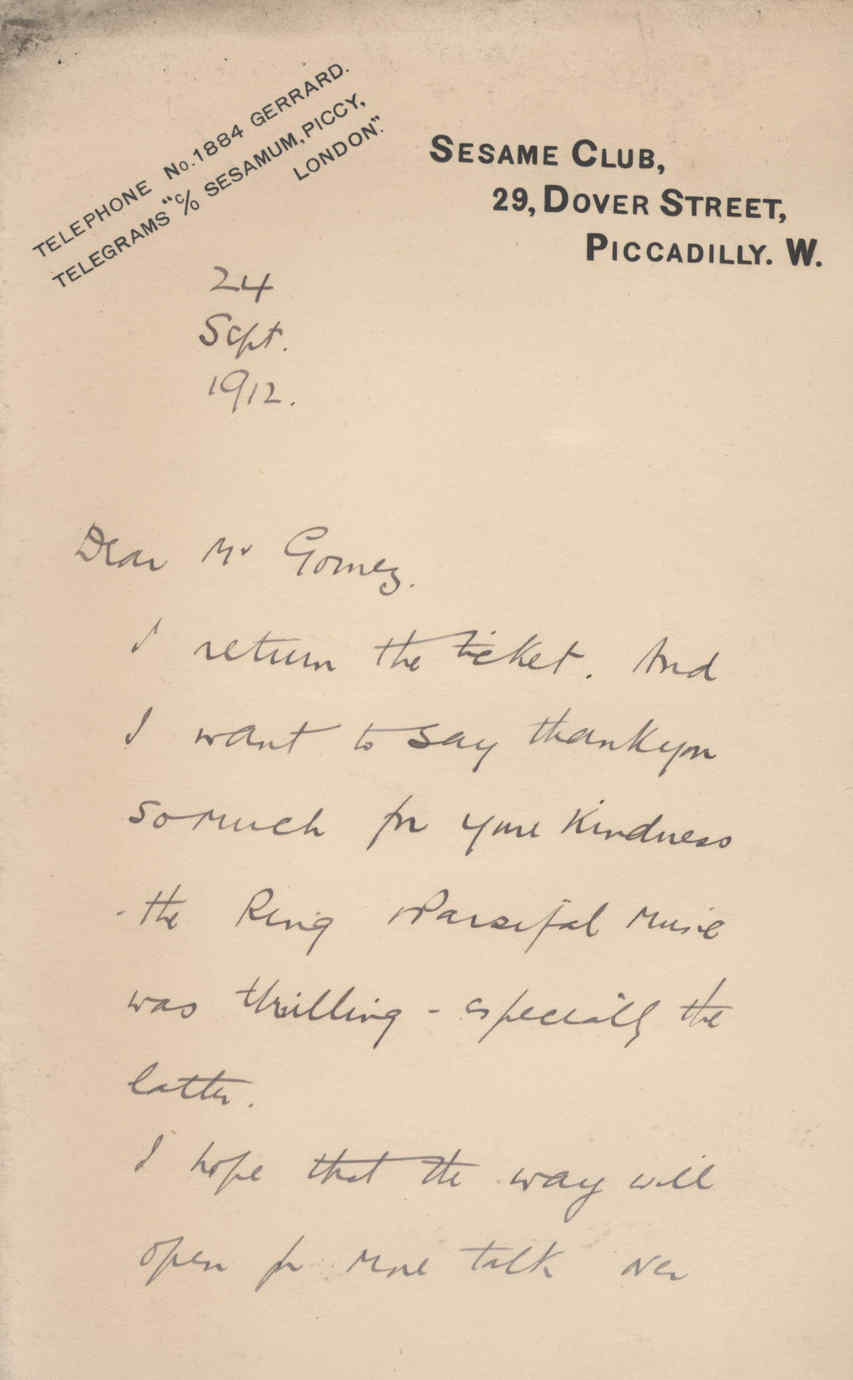 TELEPHONE No. 1884 GERRARD.
TELEGRAMS "c/o SESAMUM, PICCY,
LONDON".
SESAME CLUB,
29, DOVER STREET,
PICCADILLY. W.
24
Sept.
1912.
Dear Mr Gomez.
I return the ticket. And
I want to say thankyou
so much for your Kindness
- the Ring & Parsifal Music
was thrilling - especially the
latter.
I hope that the way will
open for more talk over